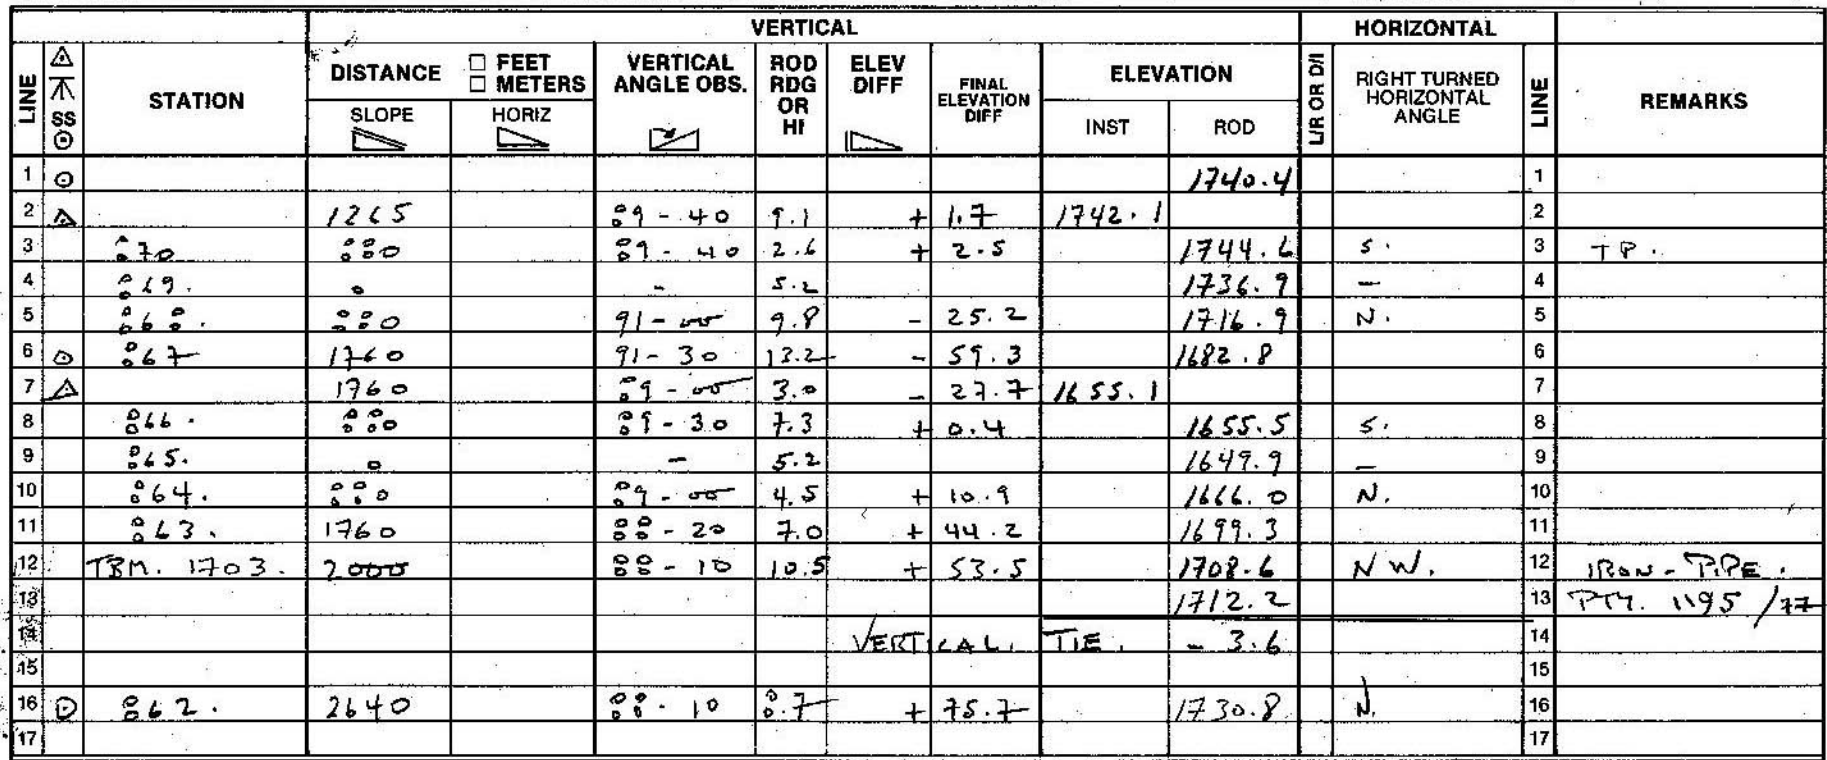 VERTICAL HORIZONTAL
LINE SS STATION DISTANCE □ FEET □ METERS SLOPE HORIZ VERTICAL ANGLE OBS. ROD RDG OR HI ELEV DIFF FINAL ELEVATION DIFF ELEVATION INST ROD L/R OR D/I RIGHT TURNED HORIZONTAL ANGLE LINE REMARKS
1 ⊙ 1740.4 1
2 △ 1265 89-40 9.1 + 1.7 1742.1 2
3 870 880 89-40 2.6 + 2.5 1744.6 S. 3 TP.
4 869. 0 - 5.2 1736.9 - 4
5 868. 880 91-00 9.8 - 25.2 1716.9 N. 5
6 ⊙ 867 1760 91-30 13.2 - 59.3 1682.8 6
7 △ 1760 89-00 3.0 - 27.7 1655.1 7
8 866. 880 89-30 7.3 + 0.4 1655.5 S. 8
9 865. 0 - 5.2 1649.9 - 9
10 864. 880 89-00 4.5 + 10.9 1666.0 N. 10
11 863. 1760 88-20 7.0 + 44.2 1699.3 11
12 TBM. 1703. 2000 88-10 10.5 + 53.5 1708.6 NW. 12 IRON-PIPE.
13 1712.2 13 PTY. 1195/77
14 VERTICAL. TIE. - 3.6 14
15 15
16 ⊙ 862. 2640 88-10 8.7 + 75.7 1730.8 N. 16
17 17